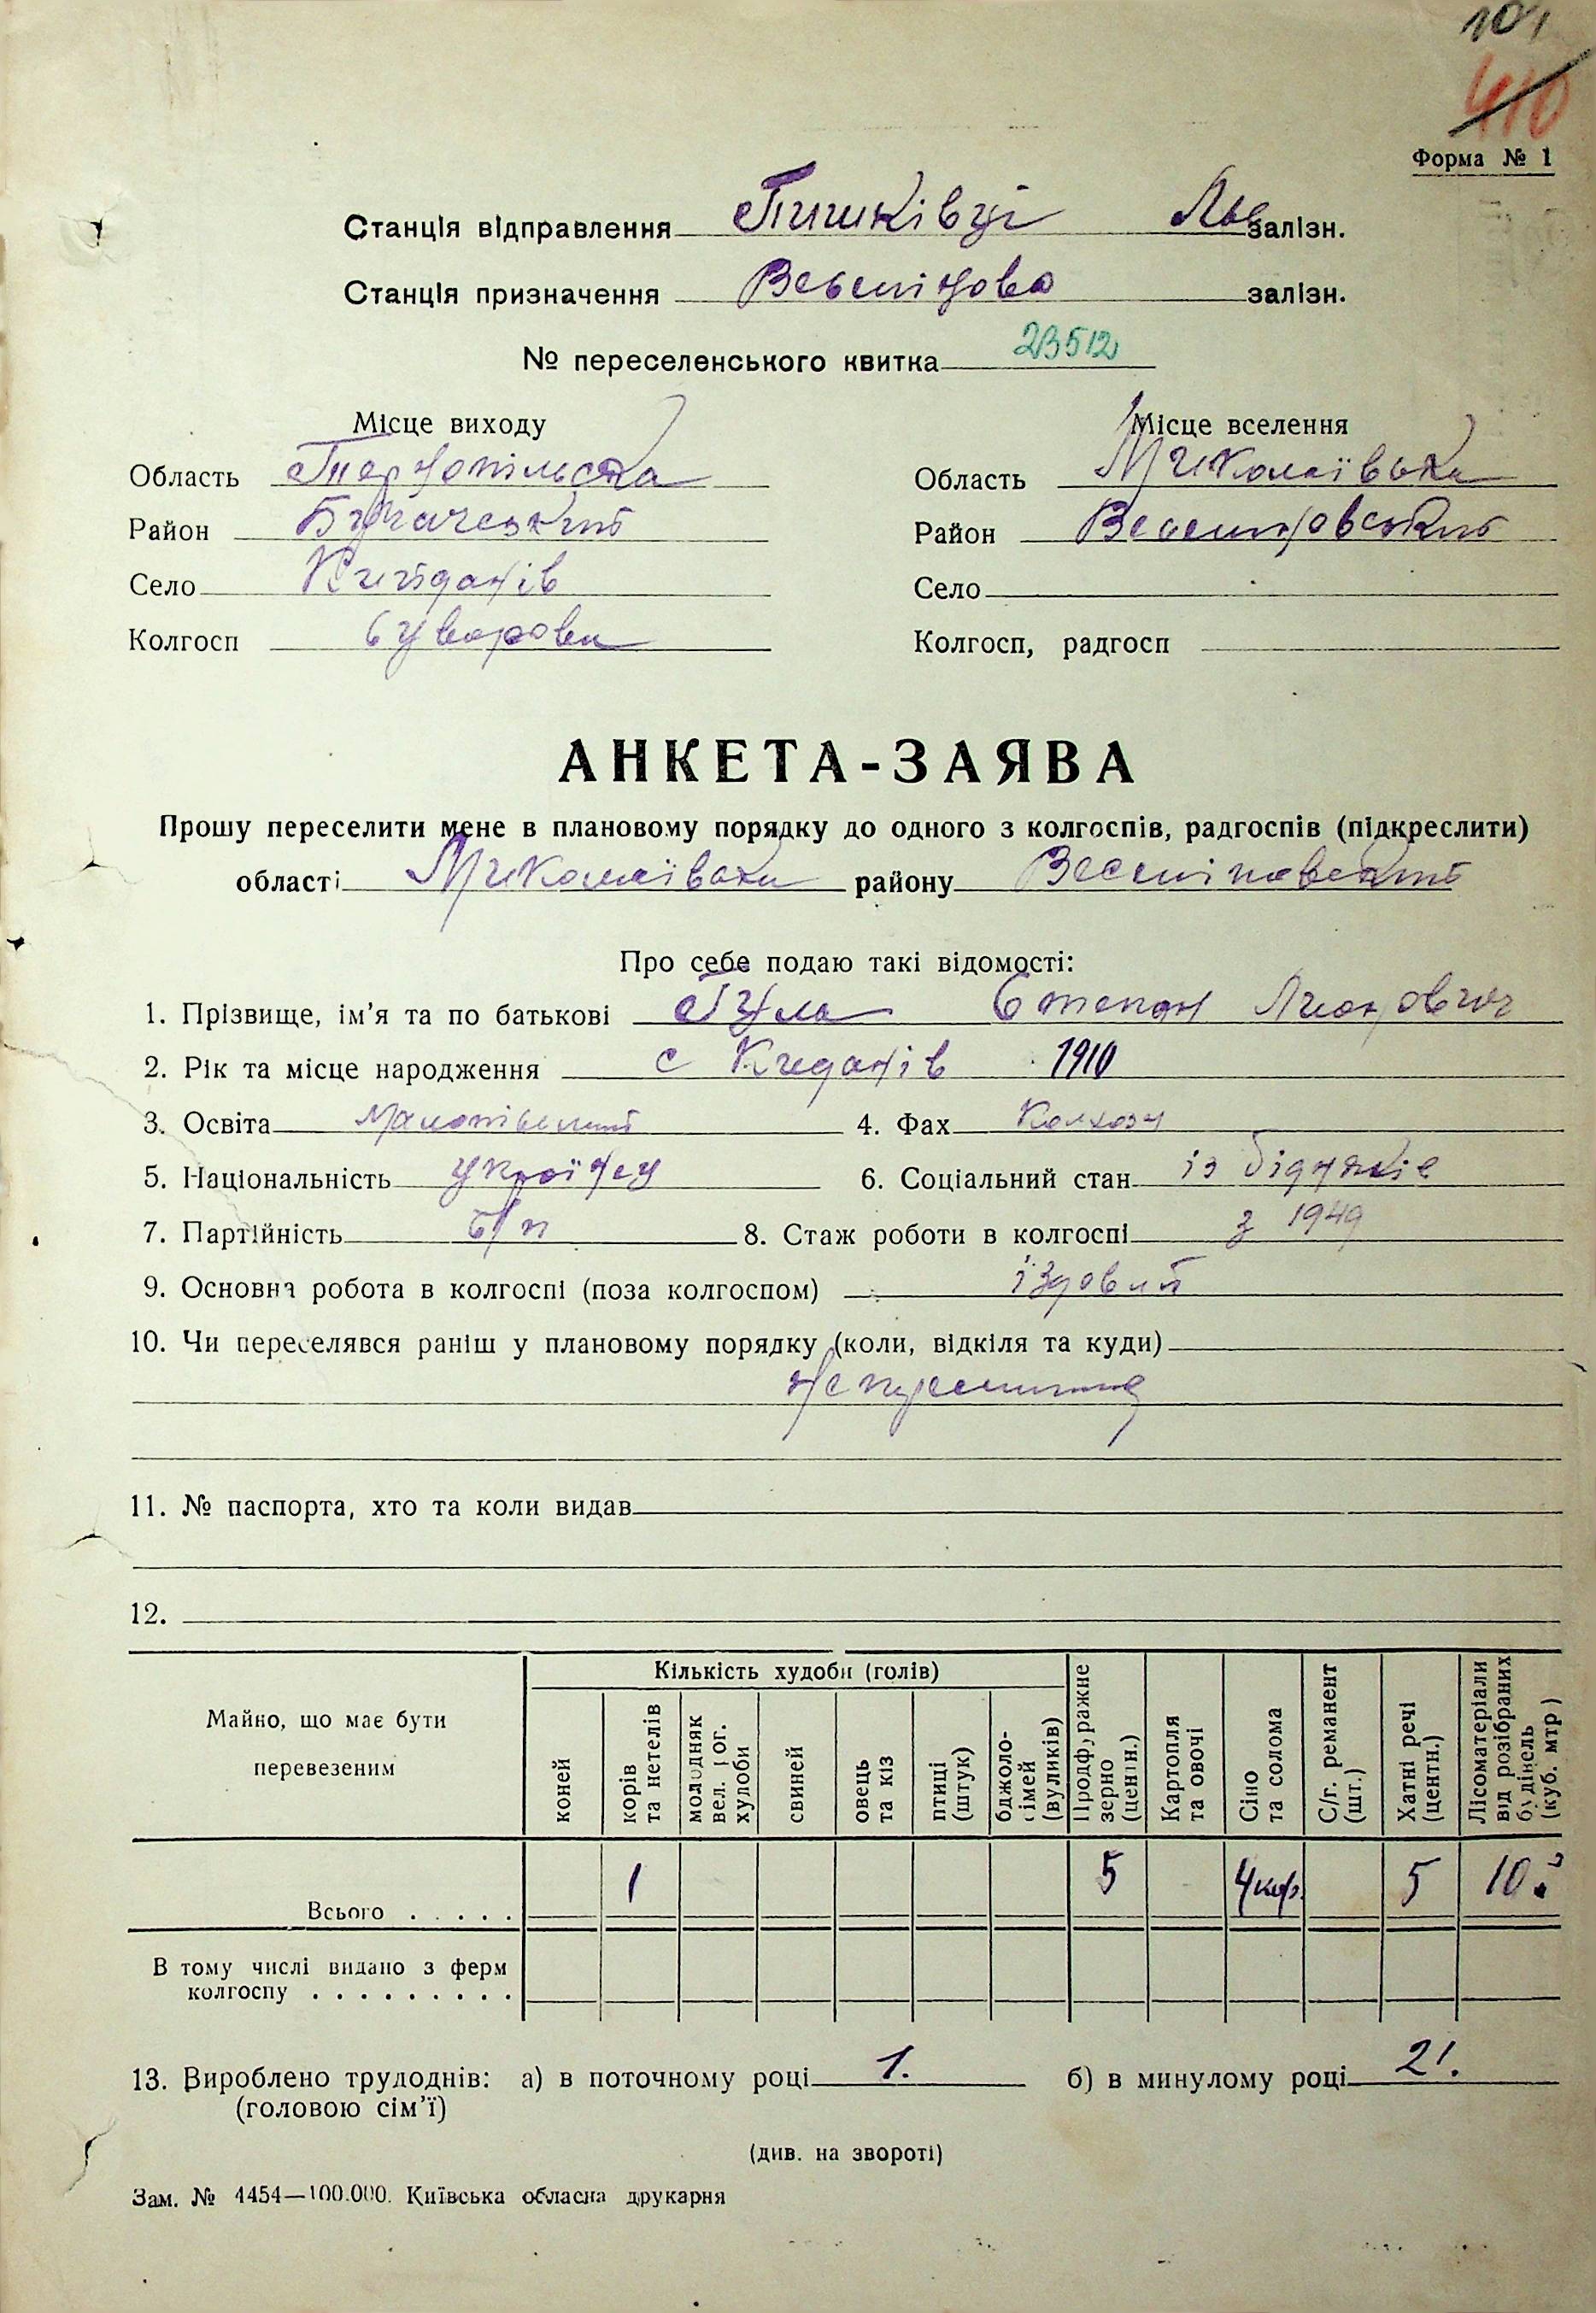 101
410
Форма № 1
Станція відправлення Пишківці Льв залізн.
Станція призначення Веселинова залізн.
№ переселенського квитка 23512
Місце виходу Місце вселення
Область Тернопільська Область Миколаївська
Район Бучачський Район Веселиновський
Село Кийданів Село
Колгосп Суворова Колгосп, радгосп
АНКЕТА-ЗАЯВА
Прошу переселити мене в плановому порядку до одного з колгоспів, радгоспів (підкреслити)
області Миколаївська району Веселіновський
Про себе подаю такі відомості:
1. Прізвище, ім'я та по батькові Степан
2. Рік та місце народження с Киданів 1910
3. Освіта Малописьмений 4. Фах Колхозн
5. Національність українец 6. Соціальний стан із бідняків
7. Партійність б/п 8. Стаж роботи в колгоспі з 1949
9. Основна робота в колгоспі (поза колгоспом) їздовий
10. Чи переселявся раніш у плановому порядку (коли, відкіля та куди)
11. № паспорта, хто та коли видав
12.
Майно, що має бути перевезеним
Кількість худоби (голів)
коней
корів та нетелів
молодняк вел. рог. худоби
свиней
овець та кіз
птиці (штук)
бджоло-сімей (вуликів)
Продфуражне зерно (центн.)
Картопля та овочі
Сіно та солома
С/г. реманент (шт.)
Хатні речі (центн.)
Лісоматеріали від розібраних будівель (куб. мтр)
Всього . . . . . 1 5 4 5 10
В тому числі видано з ферм
колгоспу . . . . . . . . .
13. Вироблено трудоднів: а) в поточному році 1. б) в минулому році 21.
(головою сім'ї)
(див. на звороті)
Зам. № 4454—100.000. Київська обласна друкарня